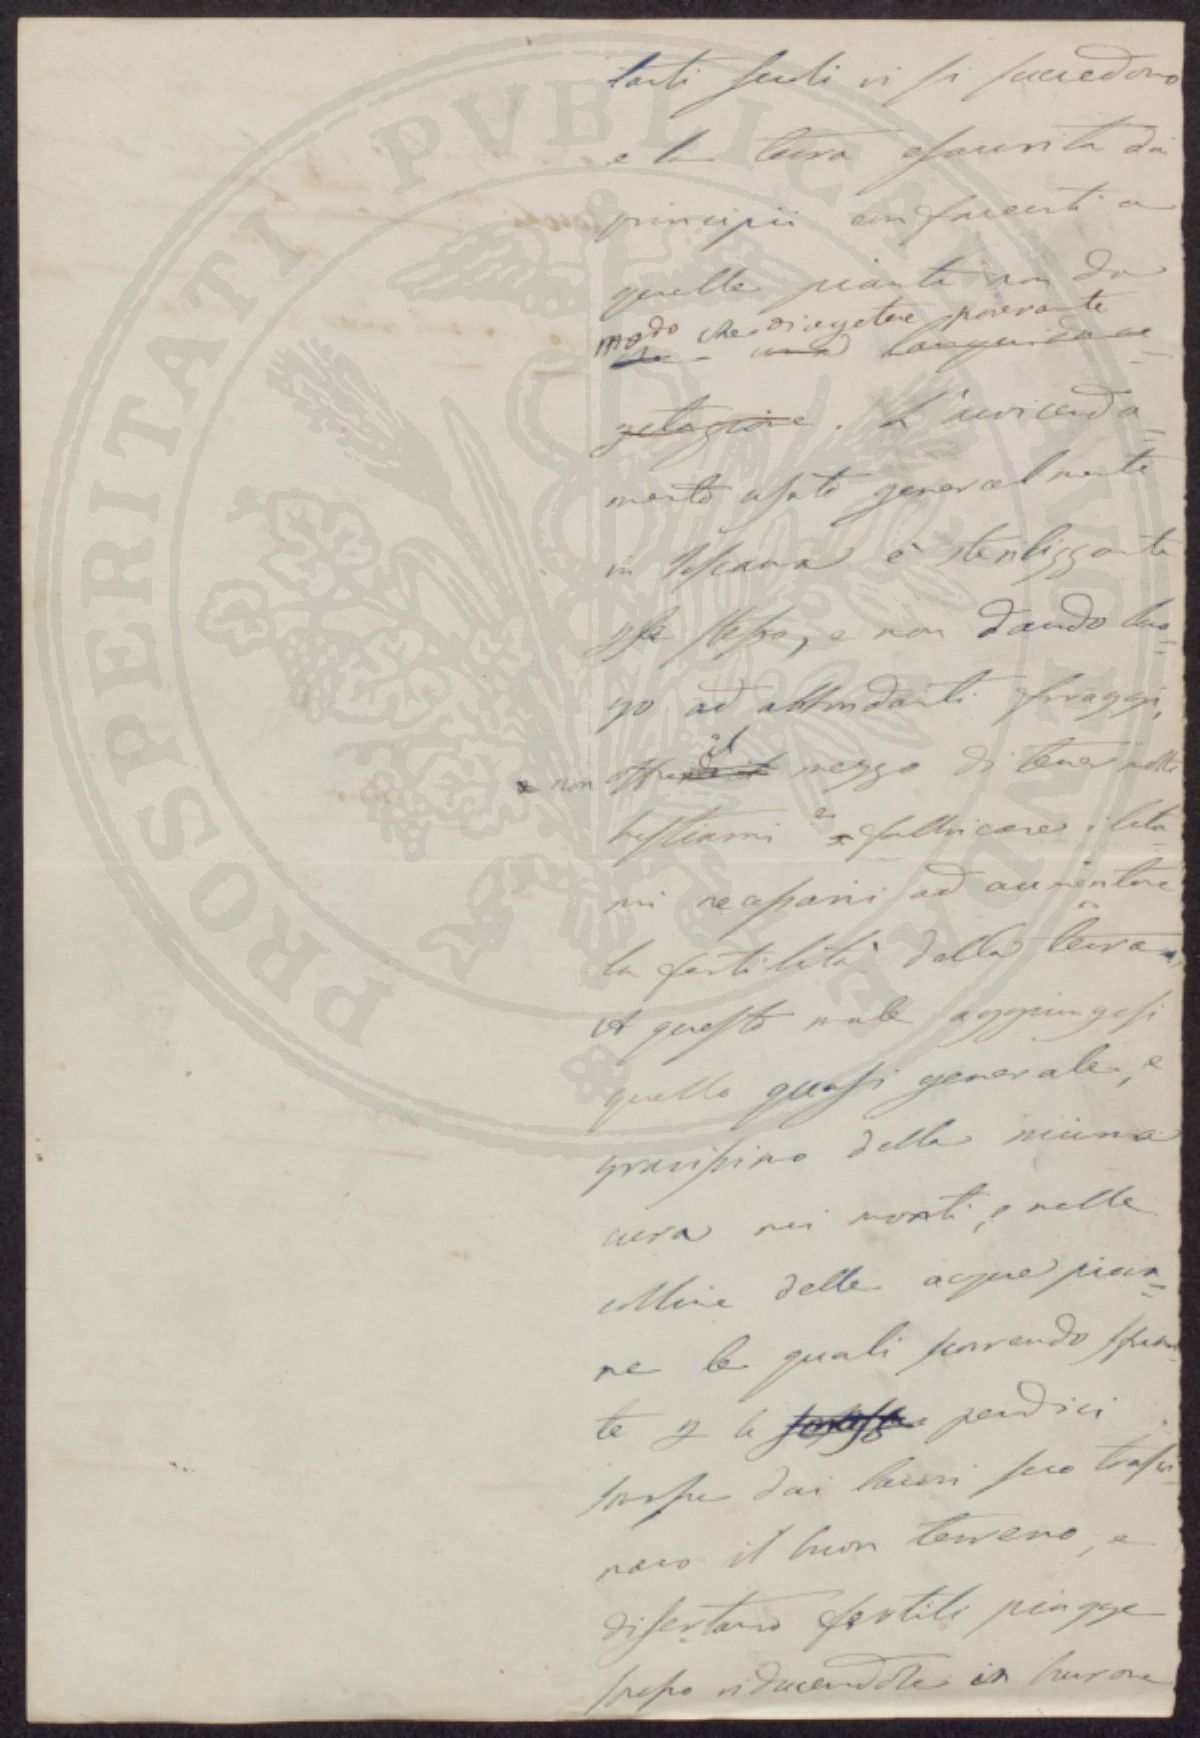 tanti secoli vi si succedono
e la terra esaurita dai
principii confacenti a
quelle piante non dà
modo che di vegetare poveramente
che una languida ve=
getazione. L'avvicenda=
mento usato generalmente
in Toscana è sterilizzante
per se stesso, e non dando luo=
go ad abbondanti foraggi,
e non offre il mezzo di tener molti
bestiami e fabbricare i leta=
mi necessarii ad aumentare
la fertilità della terra.
A questo male aggiungesi
quello quasi generale, e
gravissimo della niuna
cura nei monti, e nelle
colline delle acque piova=
ne le quali scorrendo sfrena
te per le pendici
smosse dai lavori fuo trasci=
nano il buon terreno, e
disertano fertili piagge
spesso riducendole in burrone
PROSPERITATI PVBLICAE AVGENDAE